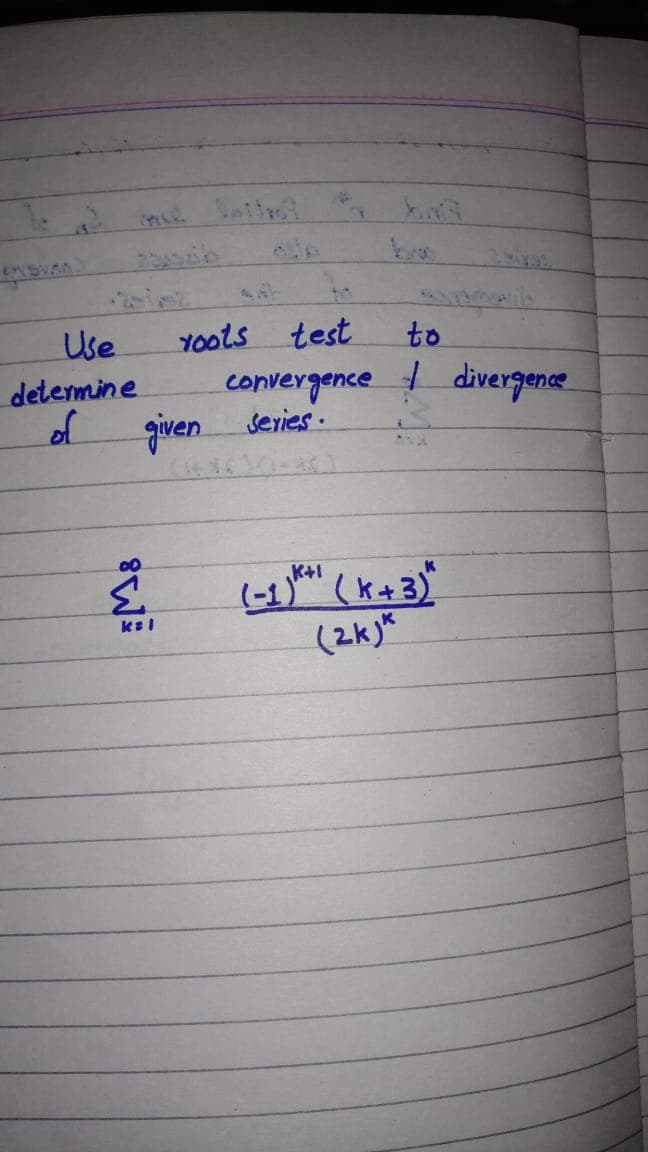 Use roots test to
determine convergence / divergence
of given series.
∞
Σ (-1)^{k+1} (k+3)^k
k=1 (2k)^k